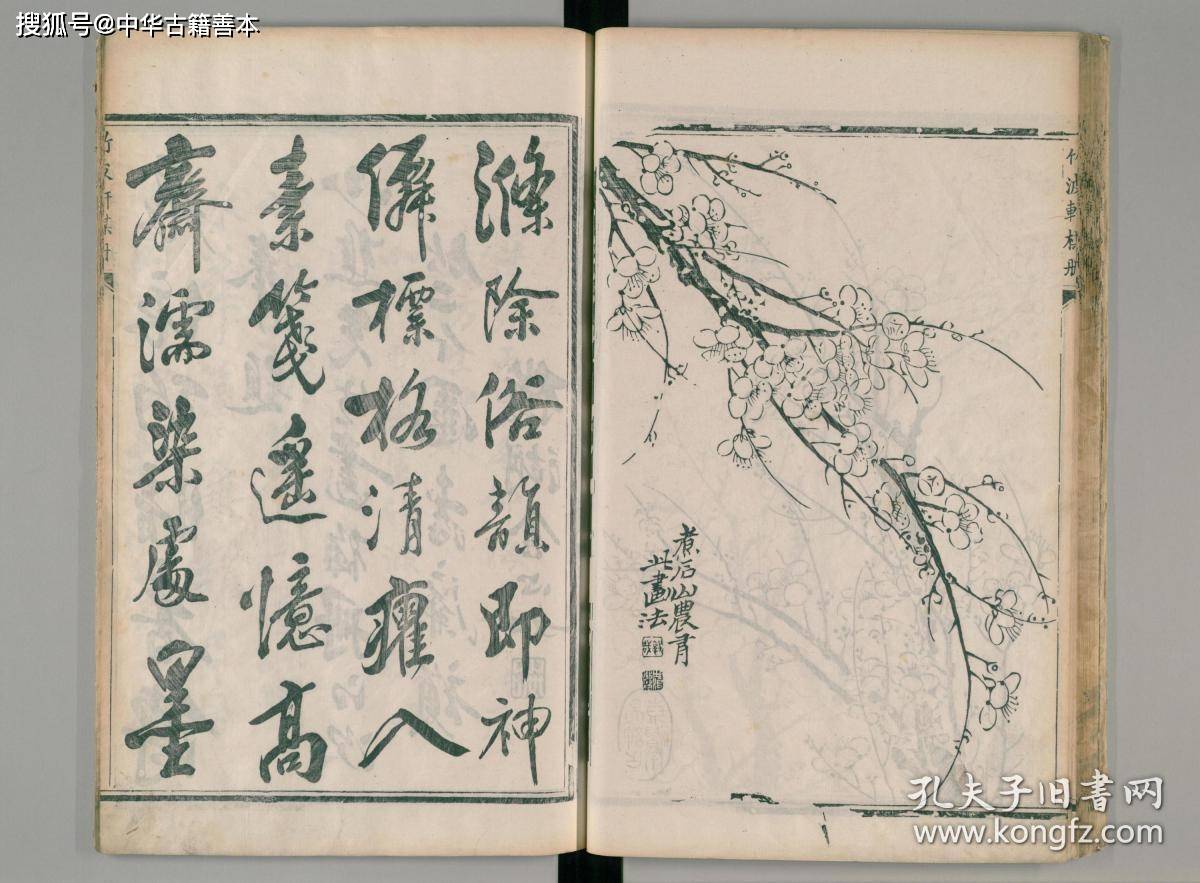 搜狐号@中华古籍善本
竹波軒梅冊
煮石山農有
此畫法
滌除俗韻即神
僊標格清癯入
素箋遙憶高
齋濡染處墨
竹波軒梅冊
孔夫子旧书网
www.kongfz.com